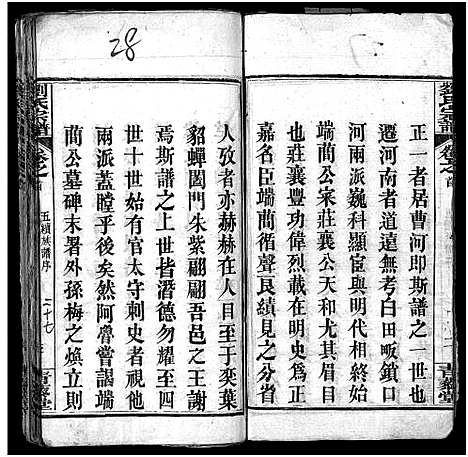 正一者居曹河即斯譜之一世也
遷河南者道遠無考白田畈鎖口
河兩派巍科顯宦與明代相終始
端簡公家莊襄公天和尤其著者
莊襄豐功偉烈載在明史易名之
嘉名臣端簡循聲良績見之分省
人攷者亦赫赫在人目至于奕葉
貂蟬闔門朱紫翩翩吾邑之王謝
焉斯譜之上世皆潛德勿耀至四
世十世始有官太守刺史者視他
兩派蓋瞠乎後矣然阿魯嘗謁端
簡公墓碑末署外孫梅之煥立則
28
劉氏宗譜
卷之首
五續族譜序
二十七
青藜堂
劉氏宗譜
卷之首
青藜堂